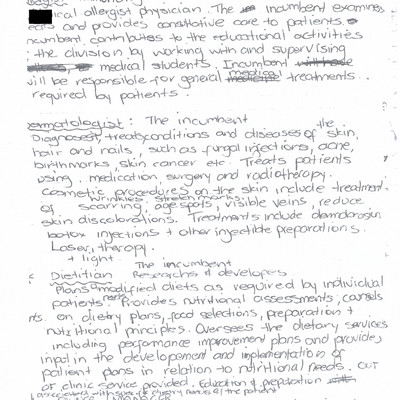 clinical allergist physician. The incumbent examines
and provides consultative care to patients.
Incumbent contributes to the educational activities
the division by working with and supervising
medical students. Incumbent
will be responsible for general medical treatments
required by patients.
Dermatologist: The incumbent
Diagnoses, treats conditions and diseases of the skin,
hair and nails, such as fungal infections, acne,
birthmarks, skin cancer etc. Treats patients
using medication, surgery and radiotherapy.
Cosmetic procedures on the skin include treatment
wrinkles, stretch marks
of scarring, age spots, visible veins, reduce
skin discolorations. Treatments include dermabrasion
botox injections + other injectable preparations.
Laser therapy.
+ light
The incumbent
Dietitian Researches & developers
Plans modified diets as required by individual
patients needs. Provides nutritional assessments, counsels
on dietary plans, food selections, preparation +
nutritional principles. Oversees the dietary services
including performance improvement plans and provides
input in the development and implementation of
patient plans in relation to nutritional needs. out
of clinic service provided. Education & preparation